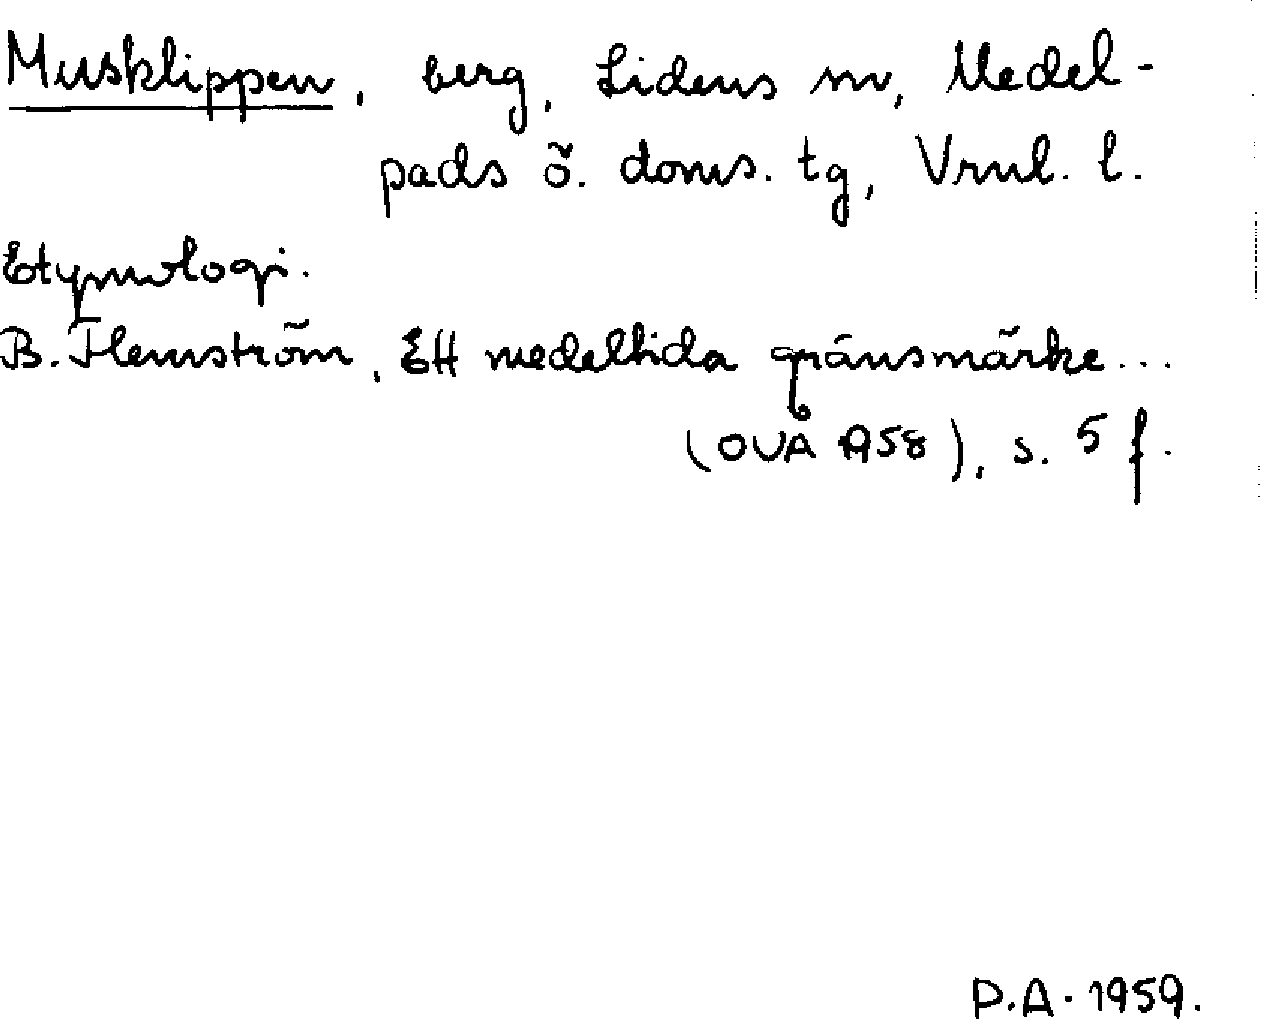 Musklippen, berg, Lidens sn, Medel-
pads ö. doms. tg, Vrnl. l.
Etymologi.
B. Flemström, Ett medeltida gränsmärke...
(OUÅ 1958), s. 5 f.
P.A. 1959.